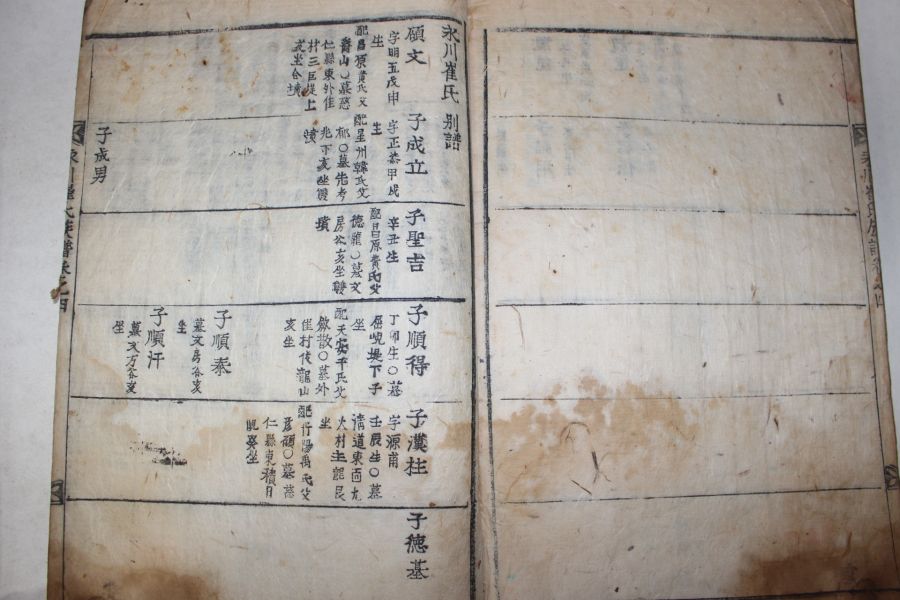 永川崔氏 別譜
顧文
字明五戊申
生
配昌原黃氏父
壽山○墓慈
仁縣東外隹
村三巨堤上
亥坐合墳
子成立
字正恭甲戌
生
配星州韓氏父
郁○墓先考
兆下亥坐雙
墳
子成男
子聖吉
辛丑生
配昌原黃氏父
德龍○墓文
房谷亥坐雙
墳
子順得
丁卯生○墓
堤下子
坐
配天安千氏父
散○墓外
隹村後龍山
亥坐
子順泰
墓文房谷亥
坐
子順汗
墓文方谷亥
坐
子漢柱
字源甫
壬辰生○墓
清道東面九
火村主龍艮
坐
配丹陽禹氏父
彦碩○墓慈
仁縣東積月
坐
子德基
永川崔氏族譜卷之四